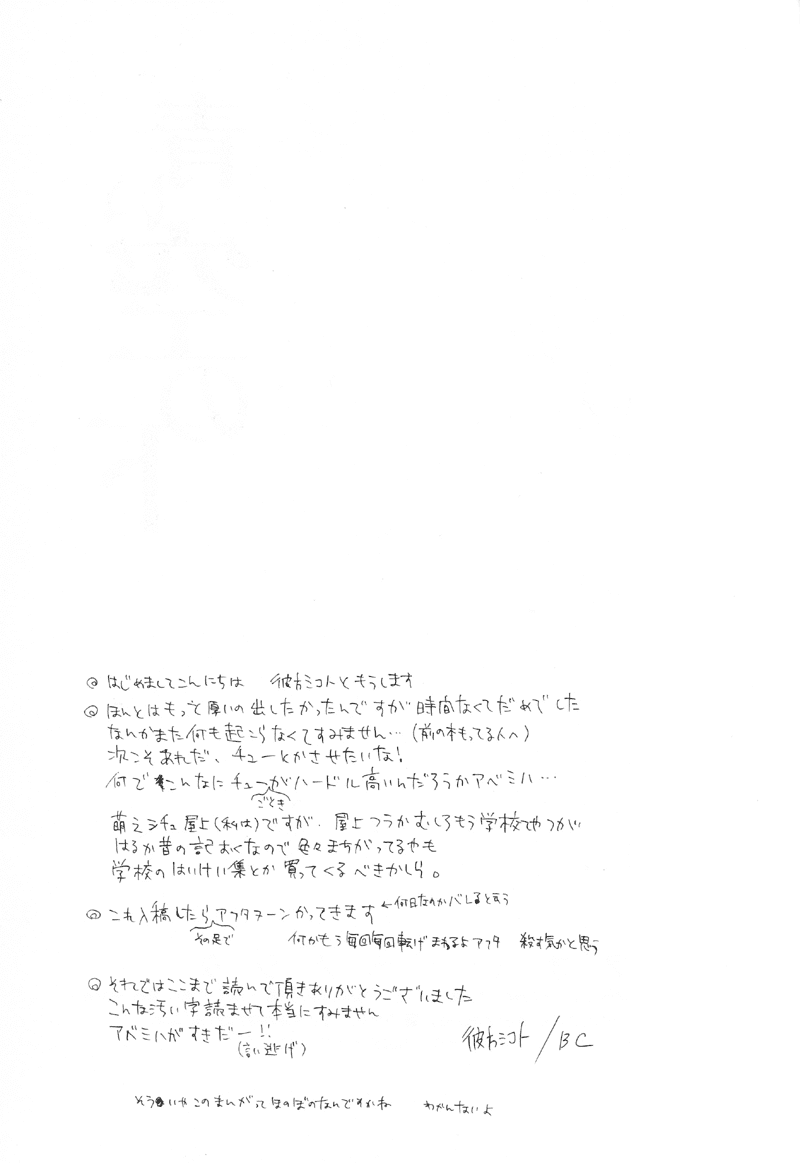 ◎ はじめましてこんにちは 彼方ミコトともうします
◎ ほんとはもっと厚いの出したかったんですが時間なくてだめでした
なんかまた何も起こらなくてすみません…(前の本もってる人へ)
次こそあれだ、チューとかさせたいな!
何でこんなにチューがハードル高いんだろうかアベミハ…
ごとき
萌えシチュ屋上(私は)ですが、屋上つうかむしろもう学校てやつが
はるか昔の記おくなので色々まちがってるやも
学校のはいけい集とか買ってくるべきかしら。
◎ これ入稿したらアフタヌーンかってきます ←何日なのかバレると言う
その足で 何かもう毎回毎回転げまわるよアフタ 殺す気かと思う
◎ それではここまで読んで頂きありがとうございました
こんな汚い字読ませて本当にすみません
アベミハがすきだー!!
(言い逃げ) 彼方ミコト/BC
そういやこのまんがってほのぼのなんですかね わかんないよ